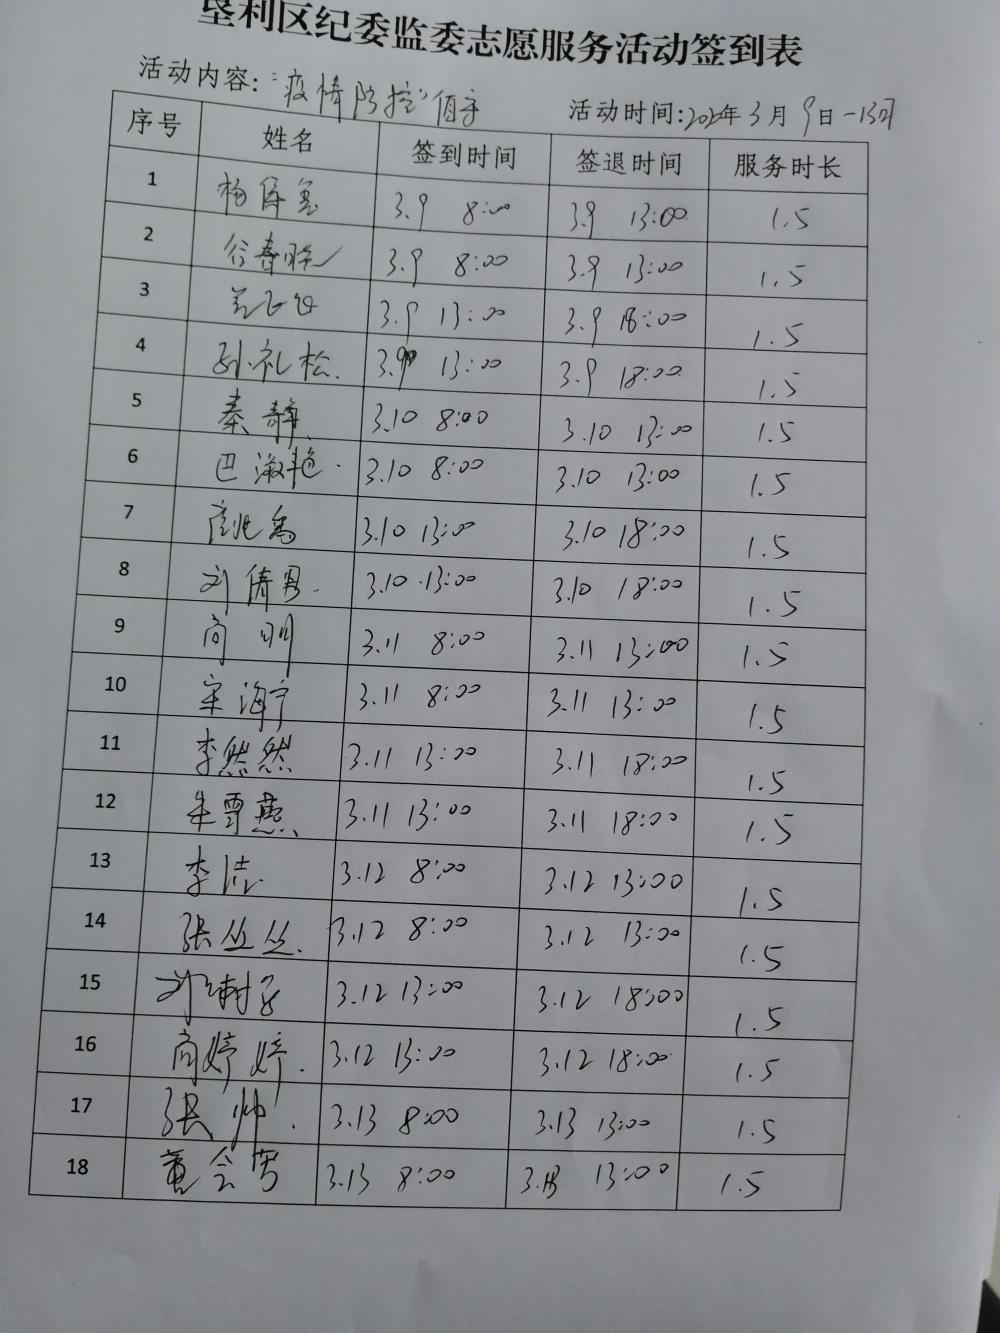 垦利区纪委监委志愿服务活动签到表
活动内容:“疫情防控”值守 活动时间:2022年3月9日-13日
序号 姓名 签到时间 签退时间 服务时长
1 3.9 8:00 3.9 13:00 1.5
2 3.9 8:00 3.9 13:00 1.5
3 3.9 13:00 3.9 18:00 1.5
4 孙礼松. 3.9 13:00 3.9 18:00 1.5
5 秦静 3.10 8:00 3.10 13:00 1.5
6 巴淑艳. 3.10 8:00 3.10 13:00 1.5
7 3.10 13:00 3.10 18:00 1.5
8 刘倩男. 3.10 13:00 3.10 18:00 1.5
9 尚明 3.11 8:00 3.11 13:00 1.5
10 宋海宁 3.11 8:00 3.11 13:00 1.5
11 李然然 3.11 13:00 3.11 18:00 1.5
12 朱雪燕 3.11 13:00 3.11 18:00 1.5
13 李洁. 3.12 8:00 3.12 13:00 1.5
14 张丛丛. 3.12 8:00 3.12 13:00 1.5
15 3.12 13:00 3.12 18:00 1.5
16 尚婷婷. 3.12 13:00 3.12 18:00 1.5
17 张帅. 3.13 8:00 3.13 13:00 1.5
18 董会芳 3.13 8:00 3.13 13:00 1.5